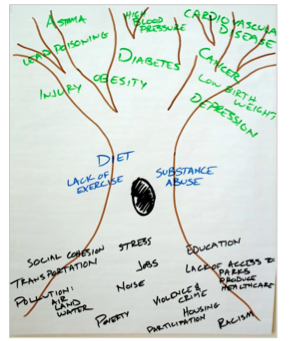 ASTHMA
HIGH
BLOOD
PRESSURE
CARDIOVASCULAR
DISEASE
LEAD POISONING
DIABETES
CANCER
INJURY
OBESITY
LOW BIRTH
WEIGHT
DEPRESSION
DIET
LACK OF
EXERCISE
SUBSTANCE
ABUSE
SOCIAL COHESION
STRESS
EDUCATION
TRANSPORTATION
JOBS
LACK OF ACCESS TO
PARKS
PRODUCE
HEALTHCARE
POLLUTION:
AIR
LAND
WATER
NOISE
VIOLENCE &
CRIME
POVERTY
HOUSING
PARTICIPATION
RACISM